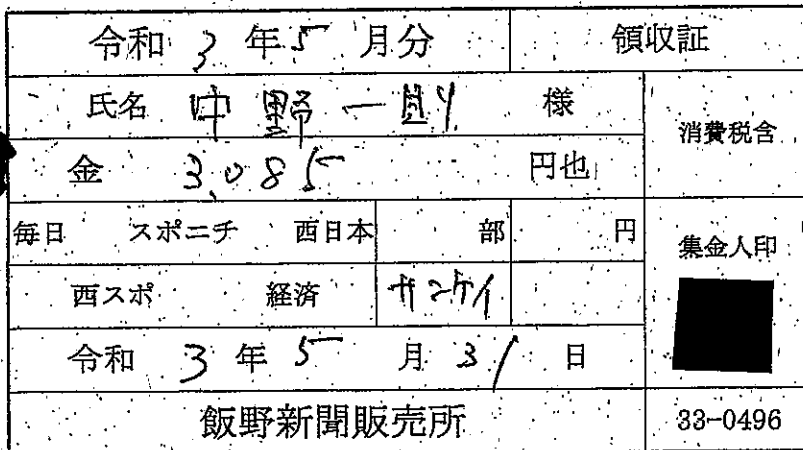 令和 3 年 5 月分 領収証
氏名 中野一則 様
消費税含
金 3,085 円也
毎日 スポニチ 西日本 部 円
集金人印
西スポ 経済 サンケイ
令和 3 年 5 月 31 日
飯野新聞販売所 33-0496